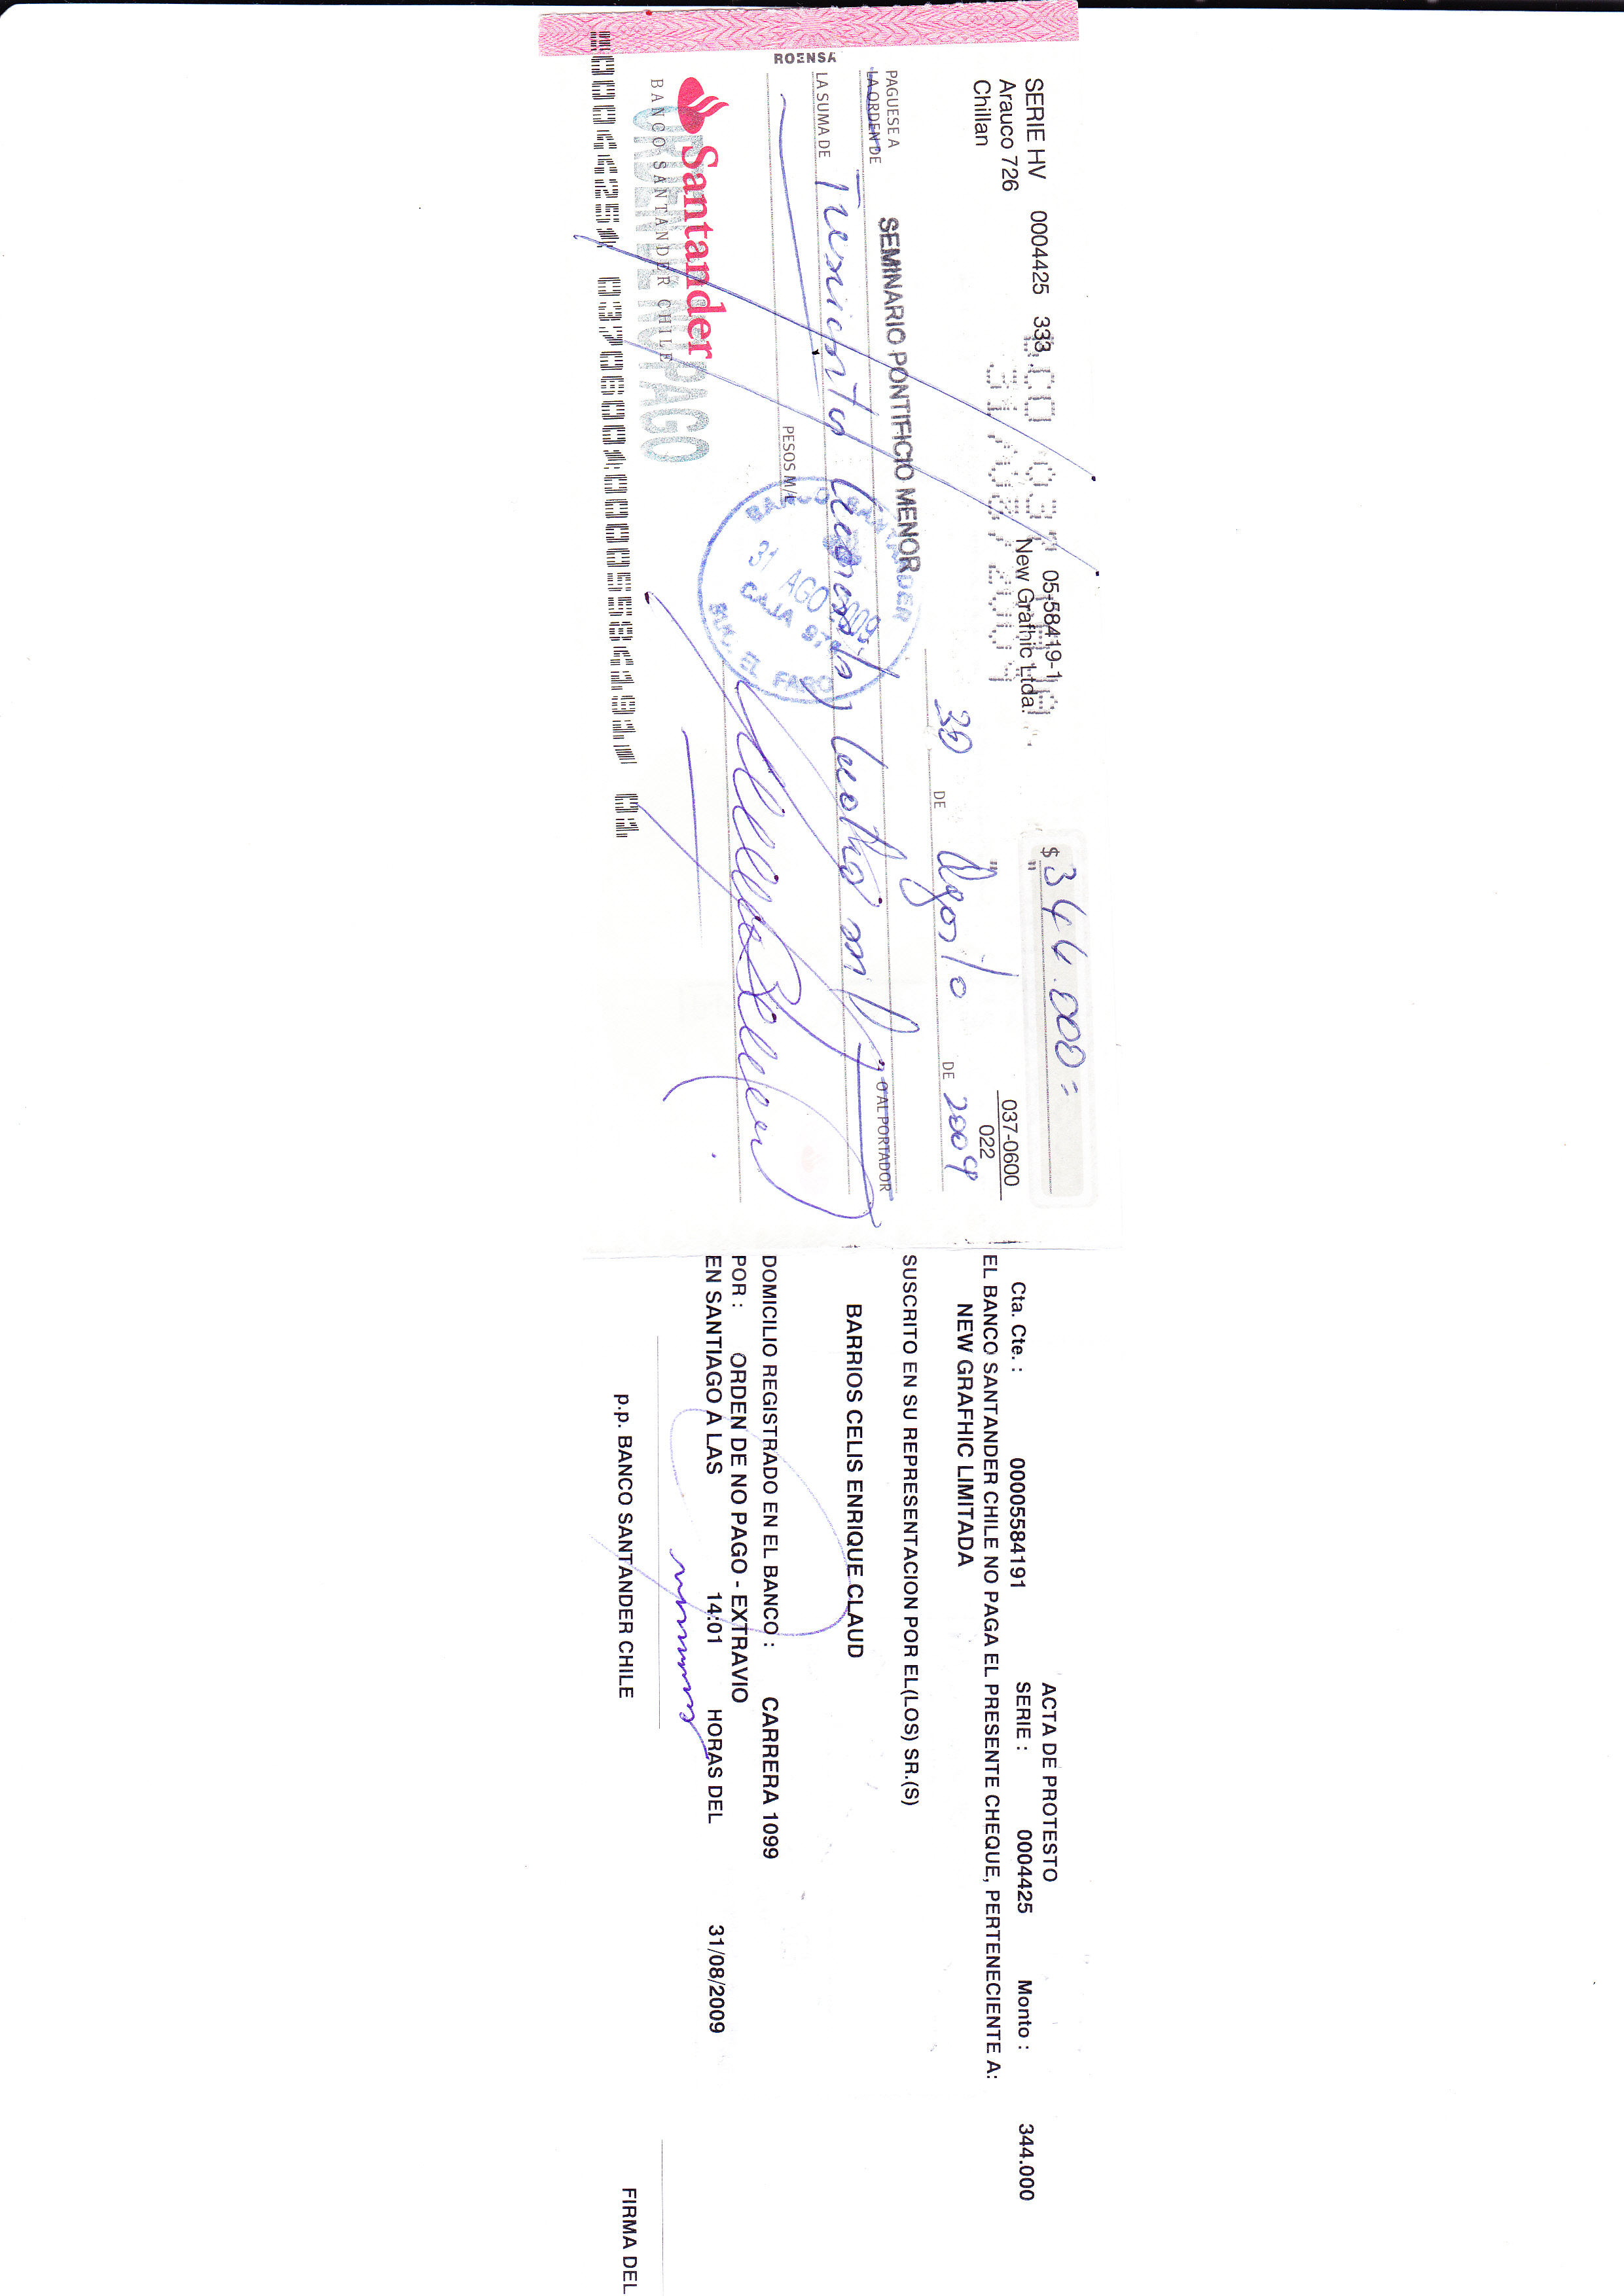 ROENSA
SERIE HV 0004425 333
Arauco 726
Chillan
05-58419-1
New Grafhic Ltda.
$ 344.000=
037-0600
022
30 DE Agosto DE 2009
PAGUESE A
LA ORDEN DE
SEMINARIO PONTIFICIO MENOR
O AL PORTADOR
LA SUMA DE Trescientos Cuarenta y cuatro mil
PESOS M/L
BANCO SANTANDER
31 AGO 2009
CAJA
EL FARO
Santander
BANCO SANTANDER CHILE
ORDEN NO PAGO
ACTA DE PROTESTO
Cta. Cte. : 00005584191 SERIE : 0004425 Monto : 344.000
EL BANCO SANTANDER CHILE NO PAGA EL PRESENTE CHEQUE, PERTENECIENTE A:
NEW GRAFHIC LIMITADA
SUSCRITO EN SU REPRESENTACION POR EL(LOS) SR.(S)
BARRIOS CELIS ENRIQUE CLAUD
DOMICILIO REGISTRADO EN EL BANCO : CARRERA 1099
POR : ORDEN DE NO PAGO - EXTRAVIO
EN SANTIAGO A LAS 14:01 HORAS DEL 31/08/2009
p.p. BANCO SANTANDER CHILE
FIRMA DEL